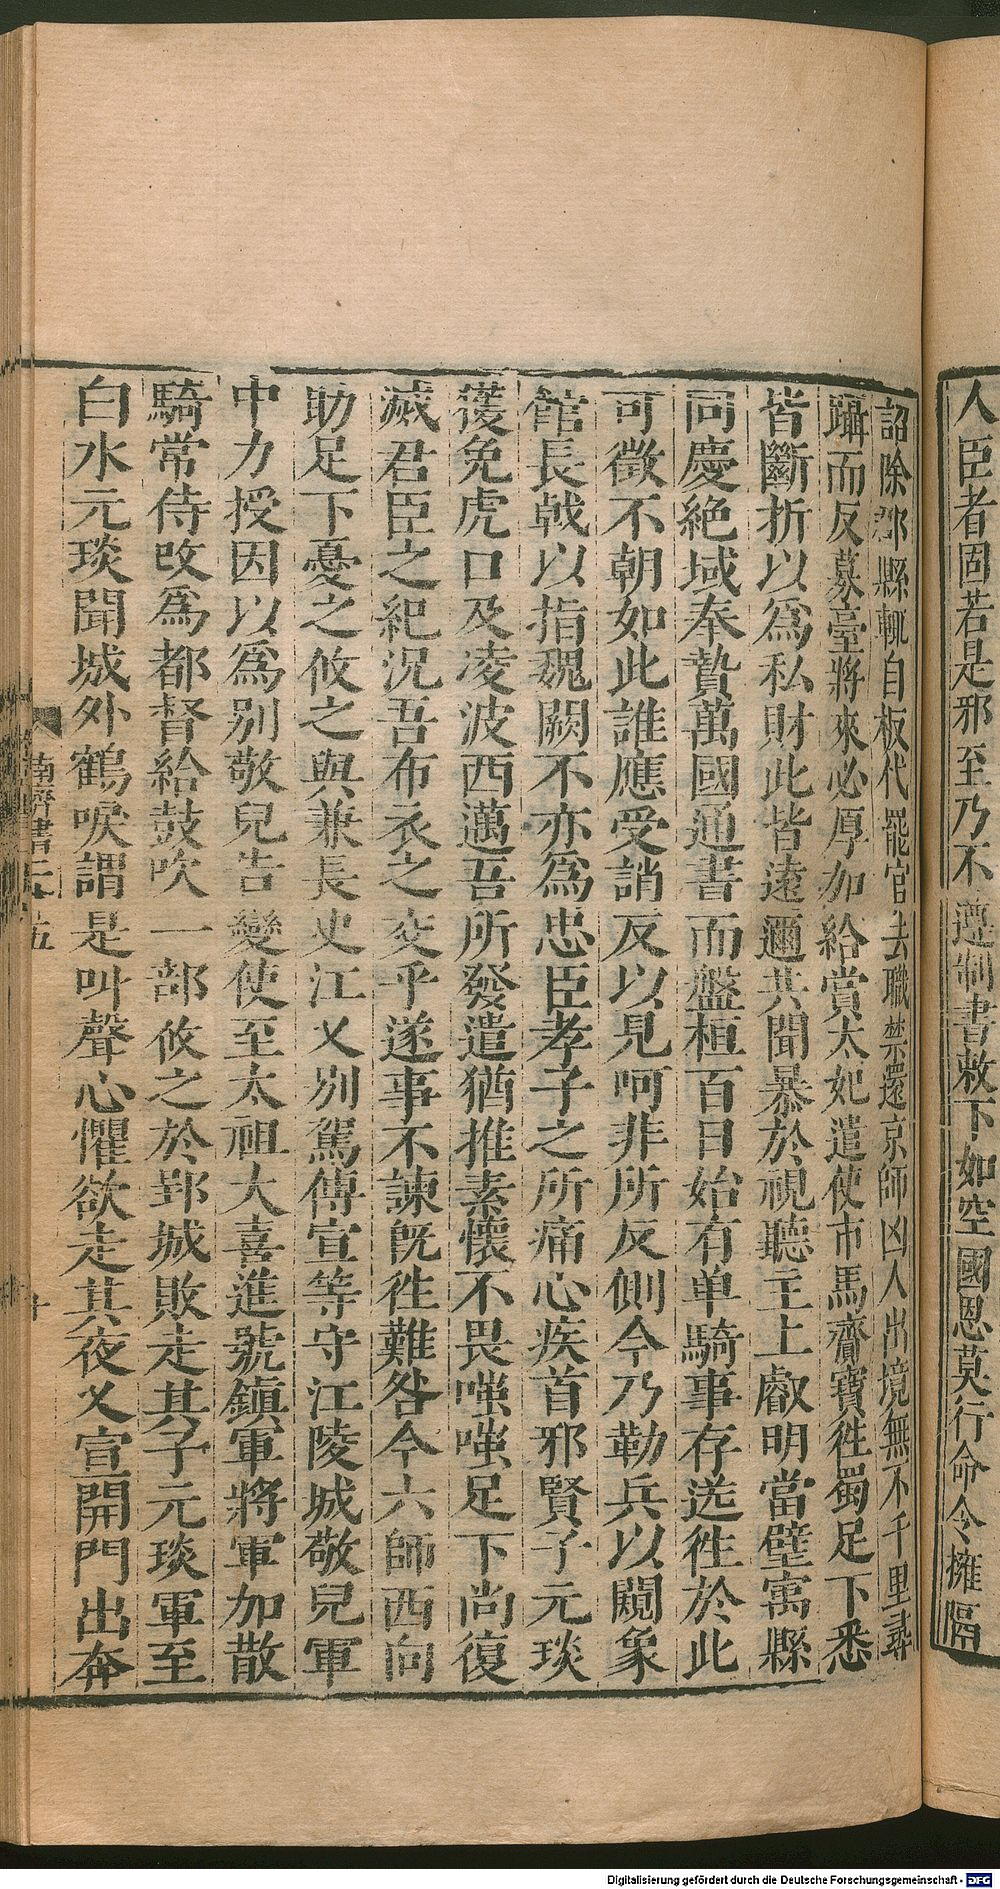 人臣者固若是邪至乃不遵制書敕下如空國恩莫行命令擁隔
詔除郡縣輒自板代罷官去職禁還京師凶人出境無不千里尋
躡而反募臺將來必厚加給賞太妃遣使市馬齎寶徃蜀足下悉
皆斷折以爲私財此皆遠邇共聞暴於視聽主上叡明當璧寓縣
同慶絶域奉贄萬國通書而盤桓百日始有单騎事存送徃於此
可徵不朝如此誰應受誚反以見呵非所反側今乃勒兵以闚象
館長戟以指魏闕不亦爲忠臣孝子之所痛心疾首邪賢子元琰
獲免虎口及凌波西邁吾所發遣猶推素懷不畏嗤嗤足下尚復
滅君臣之紀況吾布衣之交乎遂事不諫旣徃難咎今六師西向
助足下憂之攸之與兼長史江乂别駕傅宣等守江陵城敬兒軍
中力授因以爲別敬兒告變使至太祖大喜進號鎭軍將軍加散
騎常侍改爲都督給鼓吹一部攸之於郢城敗走其子元琰軍至
白水元琰聞城外鶴唳謂是叫聲心懼欲走其夜乂宣開門出奔
南齊書二十五
十
Digitalisierung gefördert durch die Deutsche Forschungsgemeinschaft - DFG